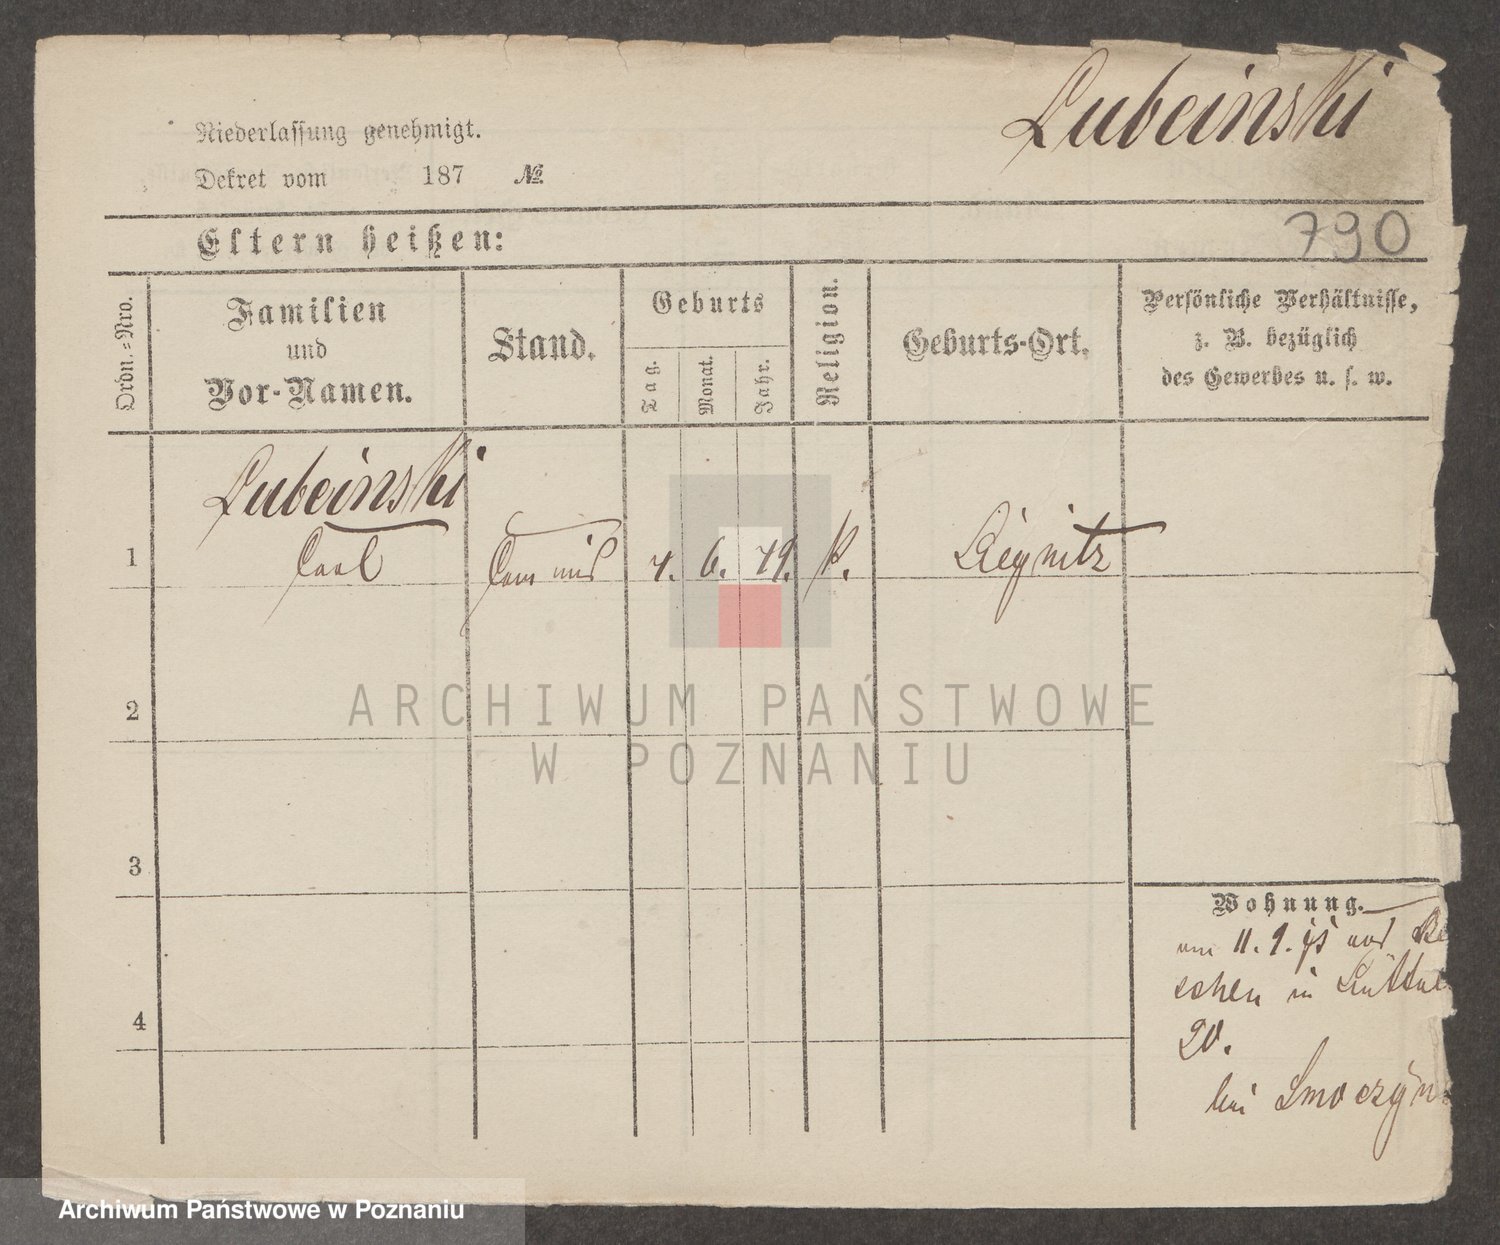 Lubeinski
Niederlassung genehmigt.
Dekret vom 187 №
790
Eltern heißen:
Ordn.-Nro.
Familien
und
Vor-Namen.
Stand.
Geburts
Tag.
Monat.
Jahr.
Religion.
Geburts-Ort.
Persönliche Verhältnisse,
z. B. bezüglich
des Gewerbes u. s. w.
Lubeinski
1 Carl Commis 4. 6. 49. k. Liegnitz
2
3
4
Wohnung.
am 11. 9. aus
schen in
20.
bei Smoczyn
ARCHIWUM PAŃSTWOWE
W POZNANIU
Archiwum Państwowe w Poznaniu